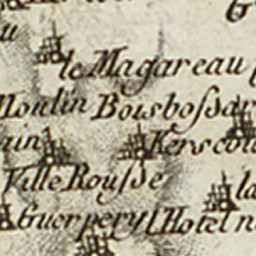 le Magareau
Moulin Boisbossar
Ville Rousse
Guerpery l'Hotel